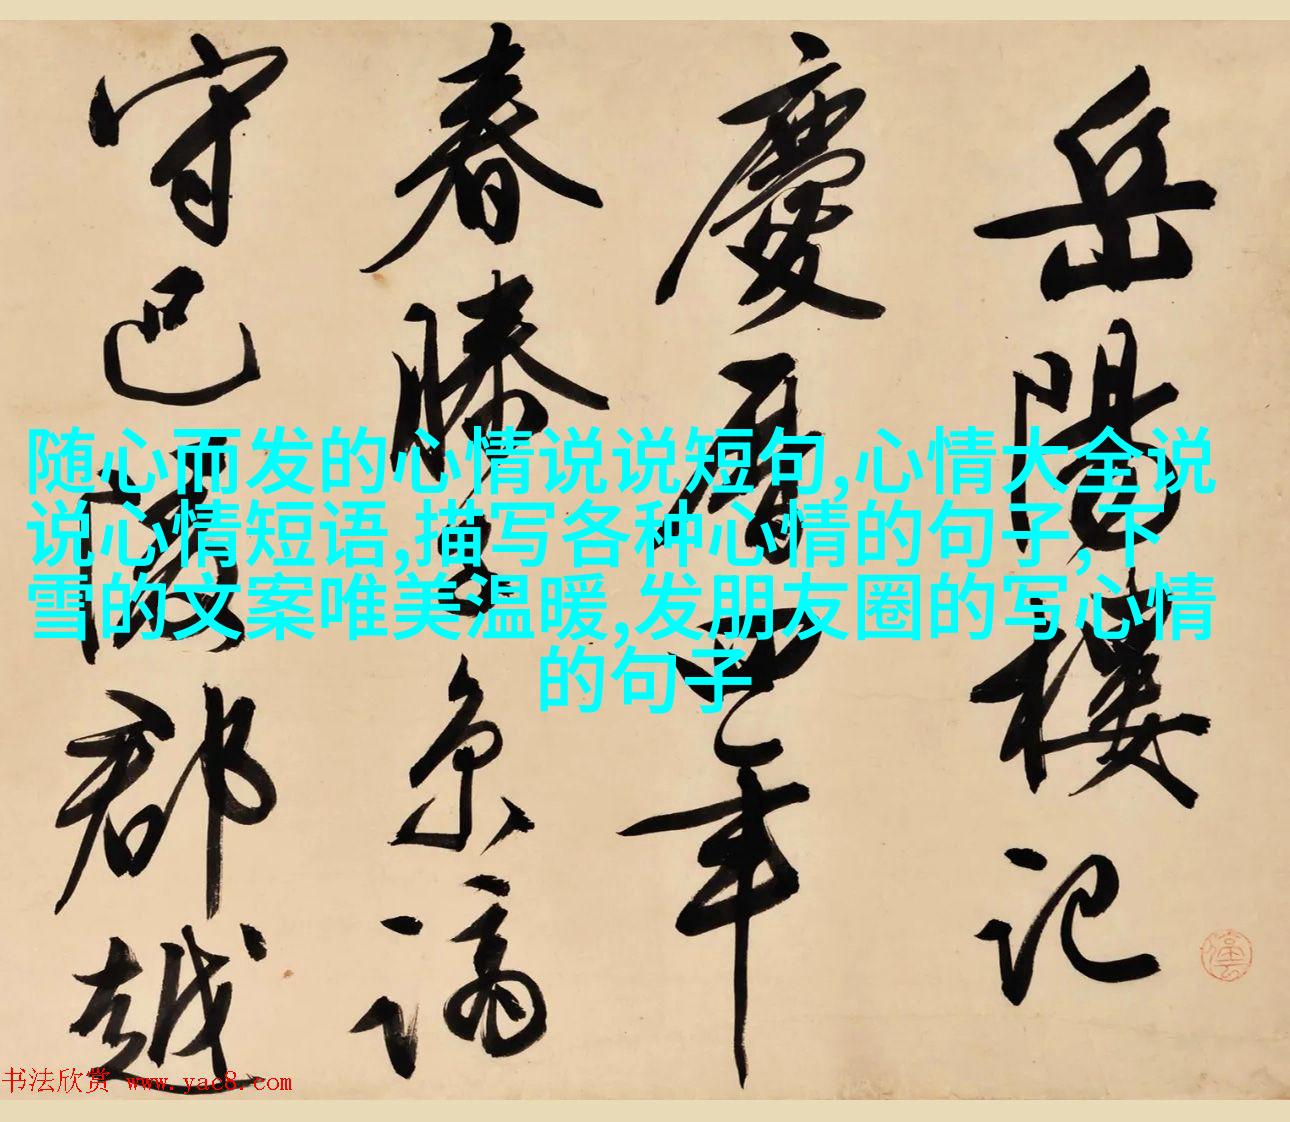 岳陽樓記
慶曆四年
春滕子京謫
守巴陵郡越
随心而发的心情说说短句,心情大全说
说心情短语,描写各种心情的句子,下
雪的文案唯美温暖,发朋友圈的写心情
的句子
书法欣赏 www.yac8.com